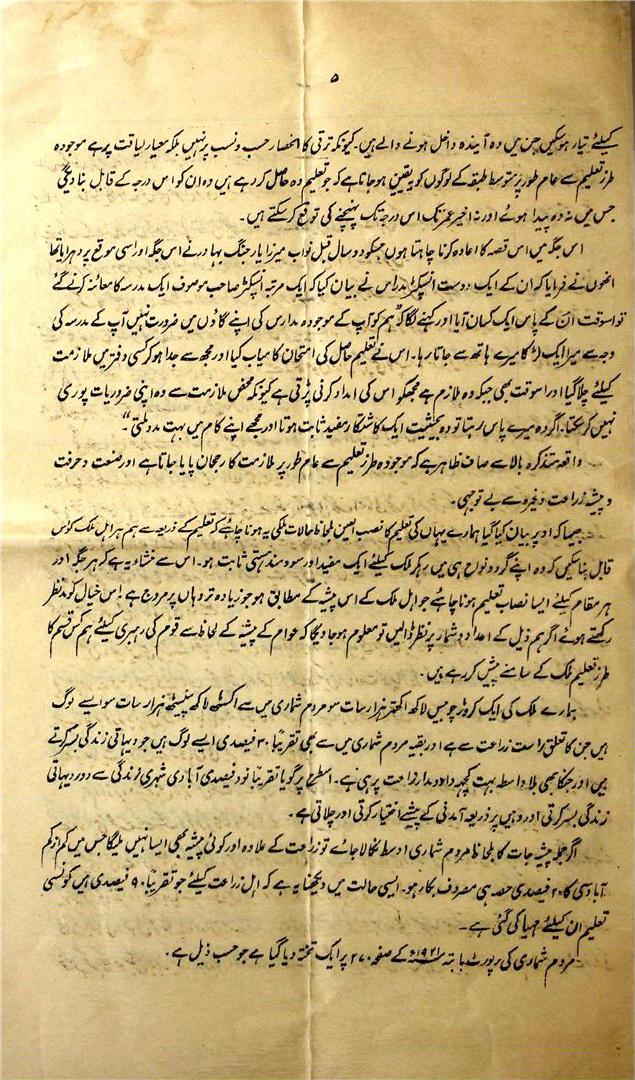 ۵
کیلئے تیار ہوسکیں جن میں وہ آیندہ داخل ہونے والے ہیں۔ کیونکہ ترقی کا انحصار حسب و نسب پر نہیں بلکہ معیار لیاقت پر ہے موجودہ
طرز تعلیم سے عام طور پر متوسط طبقہ کے لوگوں کو یقین ہوجاتا ہے کہ جو تعلیم وہ حاصل کر رہے ہیں وہ ان کو اس درجہ کے قابل بنا دیگی
جس میں نہ وہ پیدا ہوئے اور نہ اخیر عمر تک اس درجہ تک پہنچنے کی توقع کرسکتے ہیں۔
اس جگہ میں اس قصہ کا اعادہ کرنا چاہتا ہوں جسکو دو سال قبل نواب میرزا یار جنگ بہادر نے اس جگہ اور اسی موقع پر دہرایا تھا
انھوں نے فرمایا کہ ان کے ایک دوست انسپکٹر مدراس نے بیان کیا کہ ایک مرتبہ انسپکٹر صاحب موصوف ایک مدرسہ کا معائنہ کرنے گئے
تو اسوقت ان کے پاس ایک کسان آیا اور کہنے لگا کہ "ہم کو آپ کے موجودہ مدارس کی اپنے گاؤں میں ضرورت نہیں آپ کے مدرسہ کی
وجہ سے میرا ایک لڑکا میرے ہاتھ سے جاتا رہا۔ اس نے تعلیم حاصل کی امتحان کامیاب کیا اور مجھ سے جدا ہو کر کسی دفتر میں ملازمت
کیلئے چلا گیا اور اسوقت بھی جبکہ وہ ملازم ہے مجھکو اس کی امداد کرنی پڑتی ہے کیونکہ محض ملازمت سے وہ اپنی ضروریات پوری
نہیں کرسکتا۔ اگر وہ میرے پاس رہتا تو وہ بحیثیت ایک کاشتکار مفید ثابت ہوتا اور مجھے اپنے کام میں بہت مدد ملتی"
واقعہ متذکرہ بالا سے صاف ظاہر ہے کہ موجودہ طرز تعلیم سے عام طور پر ملازمت کا رجحان پایا جاتا ہے اور صنعت و حرفت
و پیشہ زراعت وغیرہ سے بے توجہی۔
جیسا کہ اوپر بیان کیا گیا ہمارے یہاں کی تعلیم کا نصب العین بلحاظ حالات ملکی یہ ہونا چاہئے کہ تعلیم کے ذریعہ سے ہم ہر اہل ملک کو اس
قابل بنا سکیں کہ وہ اپنے گرد و نواح ہی میں رہکر ملک کیلئے ایک مفید اور سودمند ہستی ثابت ہو۔ اس سے منشاء یہ ہے کہ ہر جگہ اور
ہر مقام کیلئے ایسا نصاب تعلیم ہونا چاہئے جو اہل ملک کے اس پیشہ کے مطابق ہو جو زیادہ تر وہاں پر مروج ہے۔ اس خیال کو مدنظر
رکھتے ہوئے اگر ہم ذیل کے اعداد و شمار پر نظر ڈالیں تو معلوم ہو جاویگا کہ عوام کے پیشہ کے لحاظ سے قوم کی رہبری کیلئے ہم کس قسم کا
طرز تعلیم ملک کے سامنے پیش کر رہے ہیں۔
ہمارے ملک کی ایک کروڑ چوبیس لاکھ اکہتر ہزار سات سو مردم شماری میں سے اکسٹھ لاکھ پینسٹھ ہزار سات سو ایسے لوگ
ہیں جن کا تعلق راست زراعت سے ہے اور بقیہ مردم شماری میں سے بھی تقریباً ۳۰ فیصدی ایسے لوگ ہیں جو دیہاتی زندگی بسر کرتے
ہیں اور جنکا بھی بلا واسطہ بہت کچھ دارومدار زراعت پر ہی ہے۔ اسطرح پر گویا تقریباً نود فیصدی آبادی شہری زندگی سے دور دیہاتی
زندگی بسر کرتی اور وہیں پر ذریعہ آمدنی کے پیشے اختیار کرتی اور چلاتی ہے۔
اگر جملہ پیشہ جات کا بلحاظ مردم شماری اوسط نکالا جائے تو زراعت کے علاوہ اور کوئی پیشہ بھی ایسا نہیں ملیگا جس میں کم از کم
آبادی کا ۲۰ فیصدی حصہ ہی مصروف بکار ہو۔ ایسی حالت میں دیکھنا یہ ہے کہ اہل زراعت کیلئے جو تقریباً ۹۰ فیصدی ہیں کونسی
تعلیم ان کیلئے مہیا کی گئی ہے۔
مردم شماری کی رپورٹ بابتہ سنہ ۱۹۲۱ء کے صفحہ ۲۷۰ پر ایک تختہ دیا گیا ہے جو حسب ذیل ہے۔